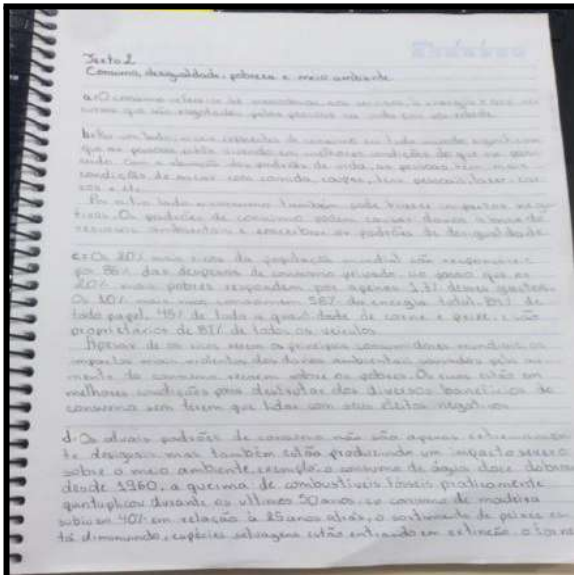 Texto 2
Consumo, desigualdade, pobreza e meio ambiente
a: O consumo refere-se às mercadorias, aos serviços, à energia e aos
cursos que são pelas pessoas na vida em sociedade
b: Por um lado, níveis crescentes de consumo em todo mundo significam
que as pessoas estão vivendo em melhores condições do que no pas-
sado. Com a elevação dos padrões de vida, as pessoas têm mais
condições de arcar com comida, roupas, itens pessoais, lazer, car-
ros e etc.
Por outro lado o consumo também pode trazer impactos nega-
tivos. Os padrões de consumo podem causar danos à base de
recursos ambientais e exacerbar os padrões de desigualdade
c: Os 20% mais ricos da população mundial são responsáveis
por 86% das despesas de consumo privado, ao passo que os
20% mais pobres respondem por apenas 1,3% desses gastos.
Os 20% mais ricos consomem 58% da energia total, 84% de
todo papel, 45% de toda a quantidade de carne e peixe, e são
proprietários de 87% de todos os veículos
Apesar de os ricos serem os principais consumidores mundiais, os
impactos mais violentos dos danos ambientais causados pelo au-
mento do consumo recaem sobre os pobres. Os ricos estão em
melhores condições para desfrutar dos diversos benefícios do
consumo sem terem que lidar com seus efeitos negativos
d: Os atuais padrões de consumo não são apenas extremamen-
te desiguais mas também estão produzindo um impacto severo
sobre o meio ambiente, exemplo: o consumo de água doce dobrou
desde 1960, a queima de combustíveis fósseis praticamente
quintuplicou durante os ultimos 50 anos, o consumo de madeira
subiu em 40% em relação à 25 anos atrás, o sortimento de peixes es-
tá diminuindo, espécies selvagens estão entrando em extinção, o